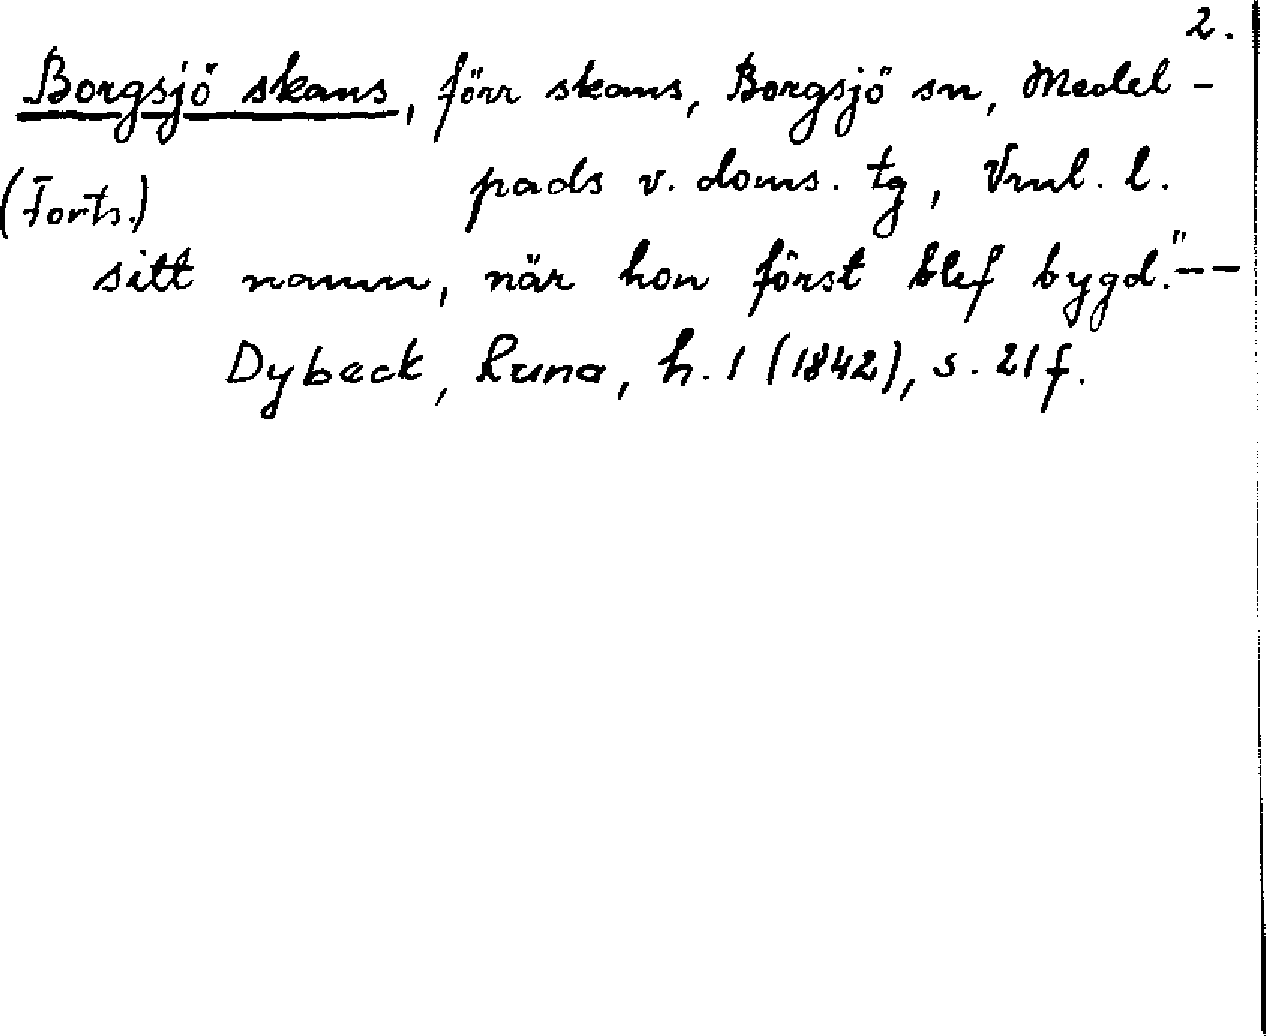 2.
Borgsjö skans, förr skans, Borgsjö sn, Medel-
(Forts.) pads v. doms. tg, Vnl. l.
sitt namn, när hon först blef bygd."--
Dybeck, Runa, h. 1 (1842), s. 21 f.